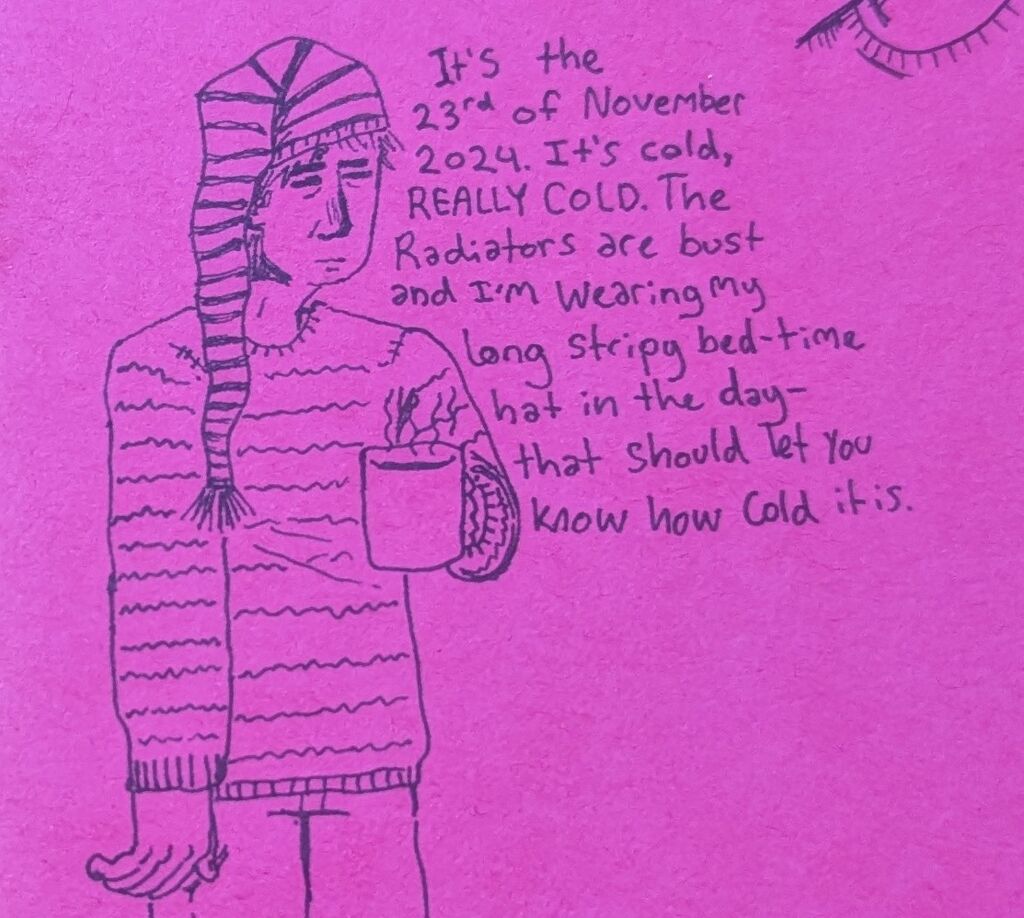 It's the
23rd of November
2024. It's cold,
REALLY COLD. The
Radiators are bust
and I'm wearing my
long stripy bed-time
hat in the day-
that should let you
know how cold it is.